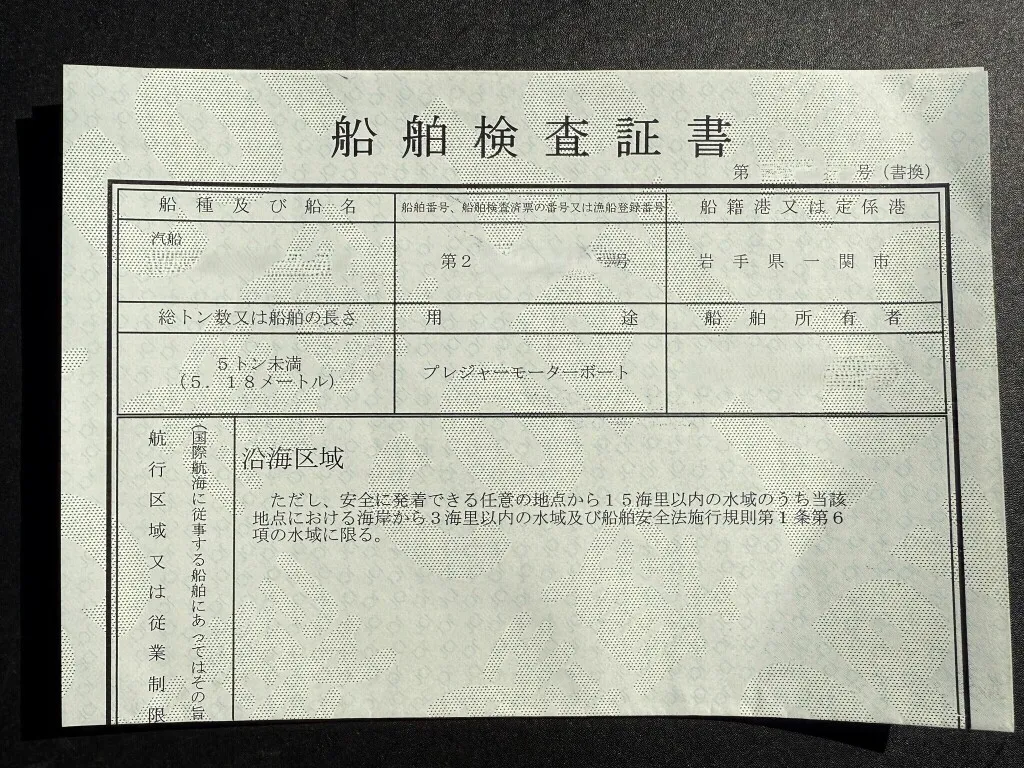 船舶検査証書
第 号（書換）
船種及び船名 船舶番号、船舶検査済票の番号又は漁船登録番号 船籍港又は定係港
汽船
第２ 号 岩手県一関市
総トン数又は船舶の長さ 用途 船舶所有者
５トン未満
（５．１８メートル） プレジャーモーターボート
航行区域又は従業制限
（国際航海に従事する船舶にあってはその旨
沿海区域
ただし、安全に発着できる任意の地点から１５海里以内の水域のうち当該
地点における海岸から３海里以内の水域及び船舶安全法施行規則第１条第６
項の水域に限る。